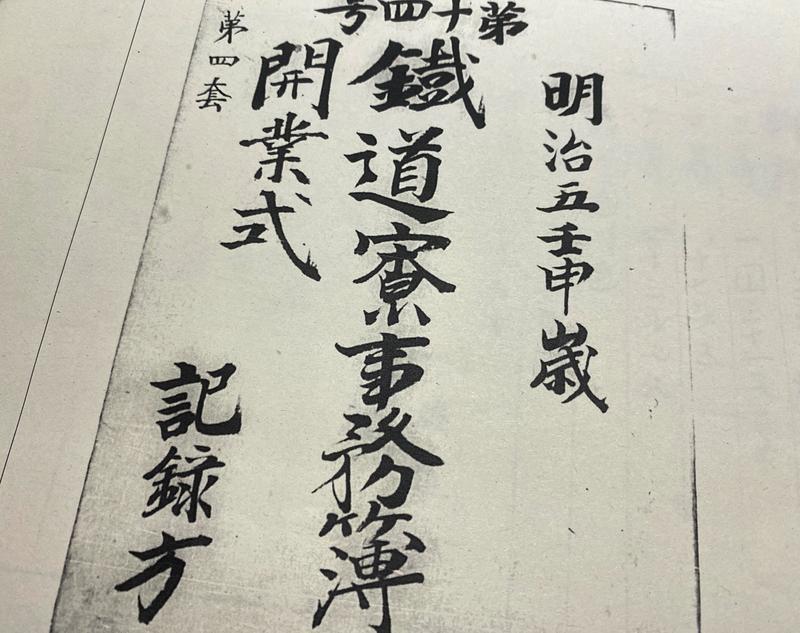 第十四号
明治五壬申歳
鐵道寮事務簿
開業式
記録方
第四套